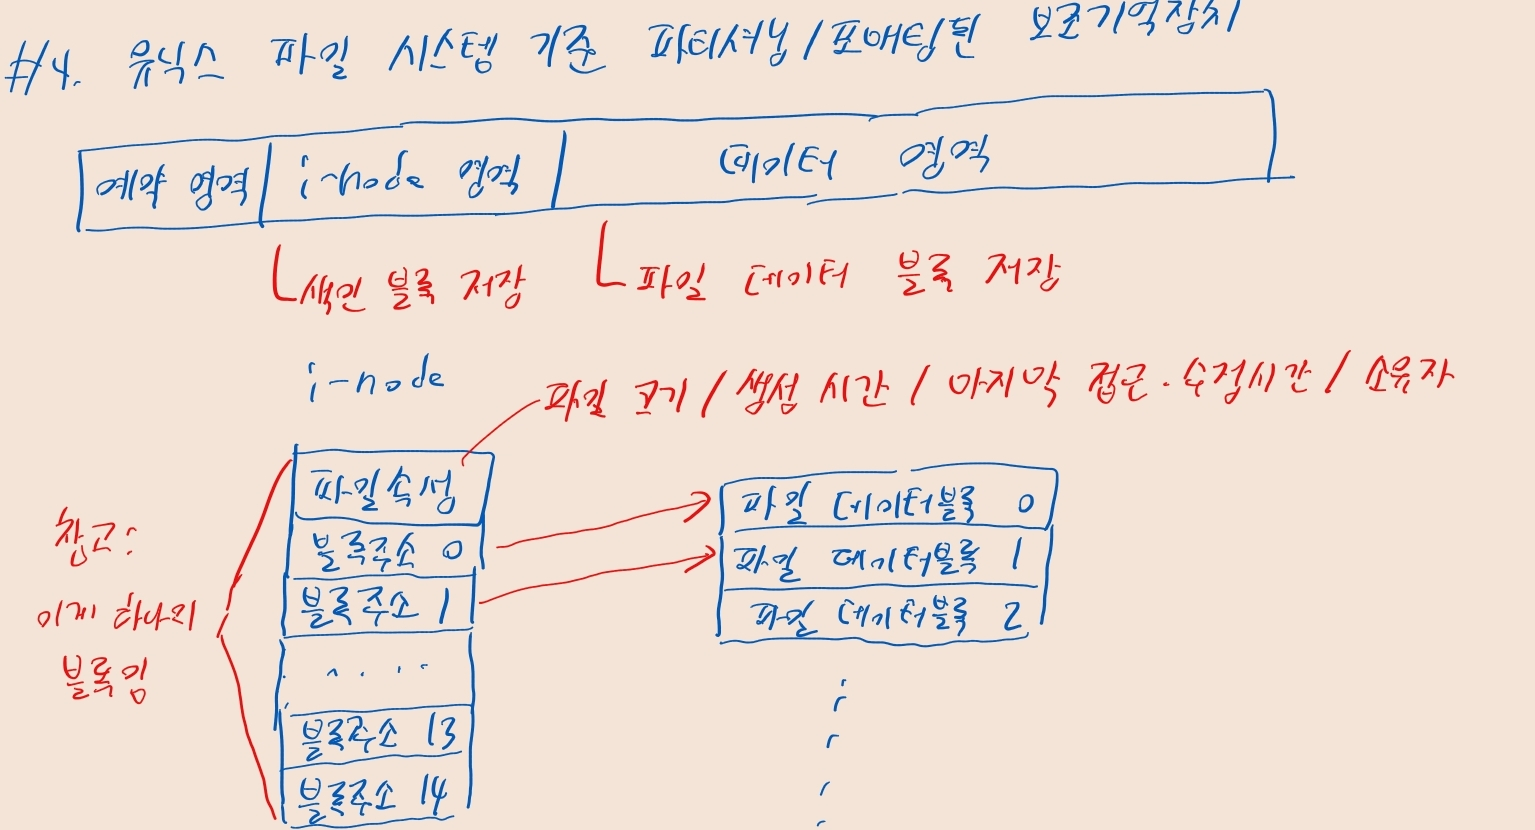 #4. 유닉스 파일 시스템 기준 파티셔닝/포매팅된 보조기억장치
예약 영역 i-node 영역 데이터 영역
색인 블록 저장 파일 데이터 블록 저장
i-node
파일 크기 / 생성 시간 / 마지막 접근·수정시간 / 소유자
파일속성
블록주소 0
블록주소 1
....
블록주소 13
블록주소 14
참고:
이게 하나의
블록임
파일 데이터블록 0
파일 데이터블록 1
파일 데이터블록 2